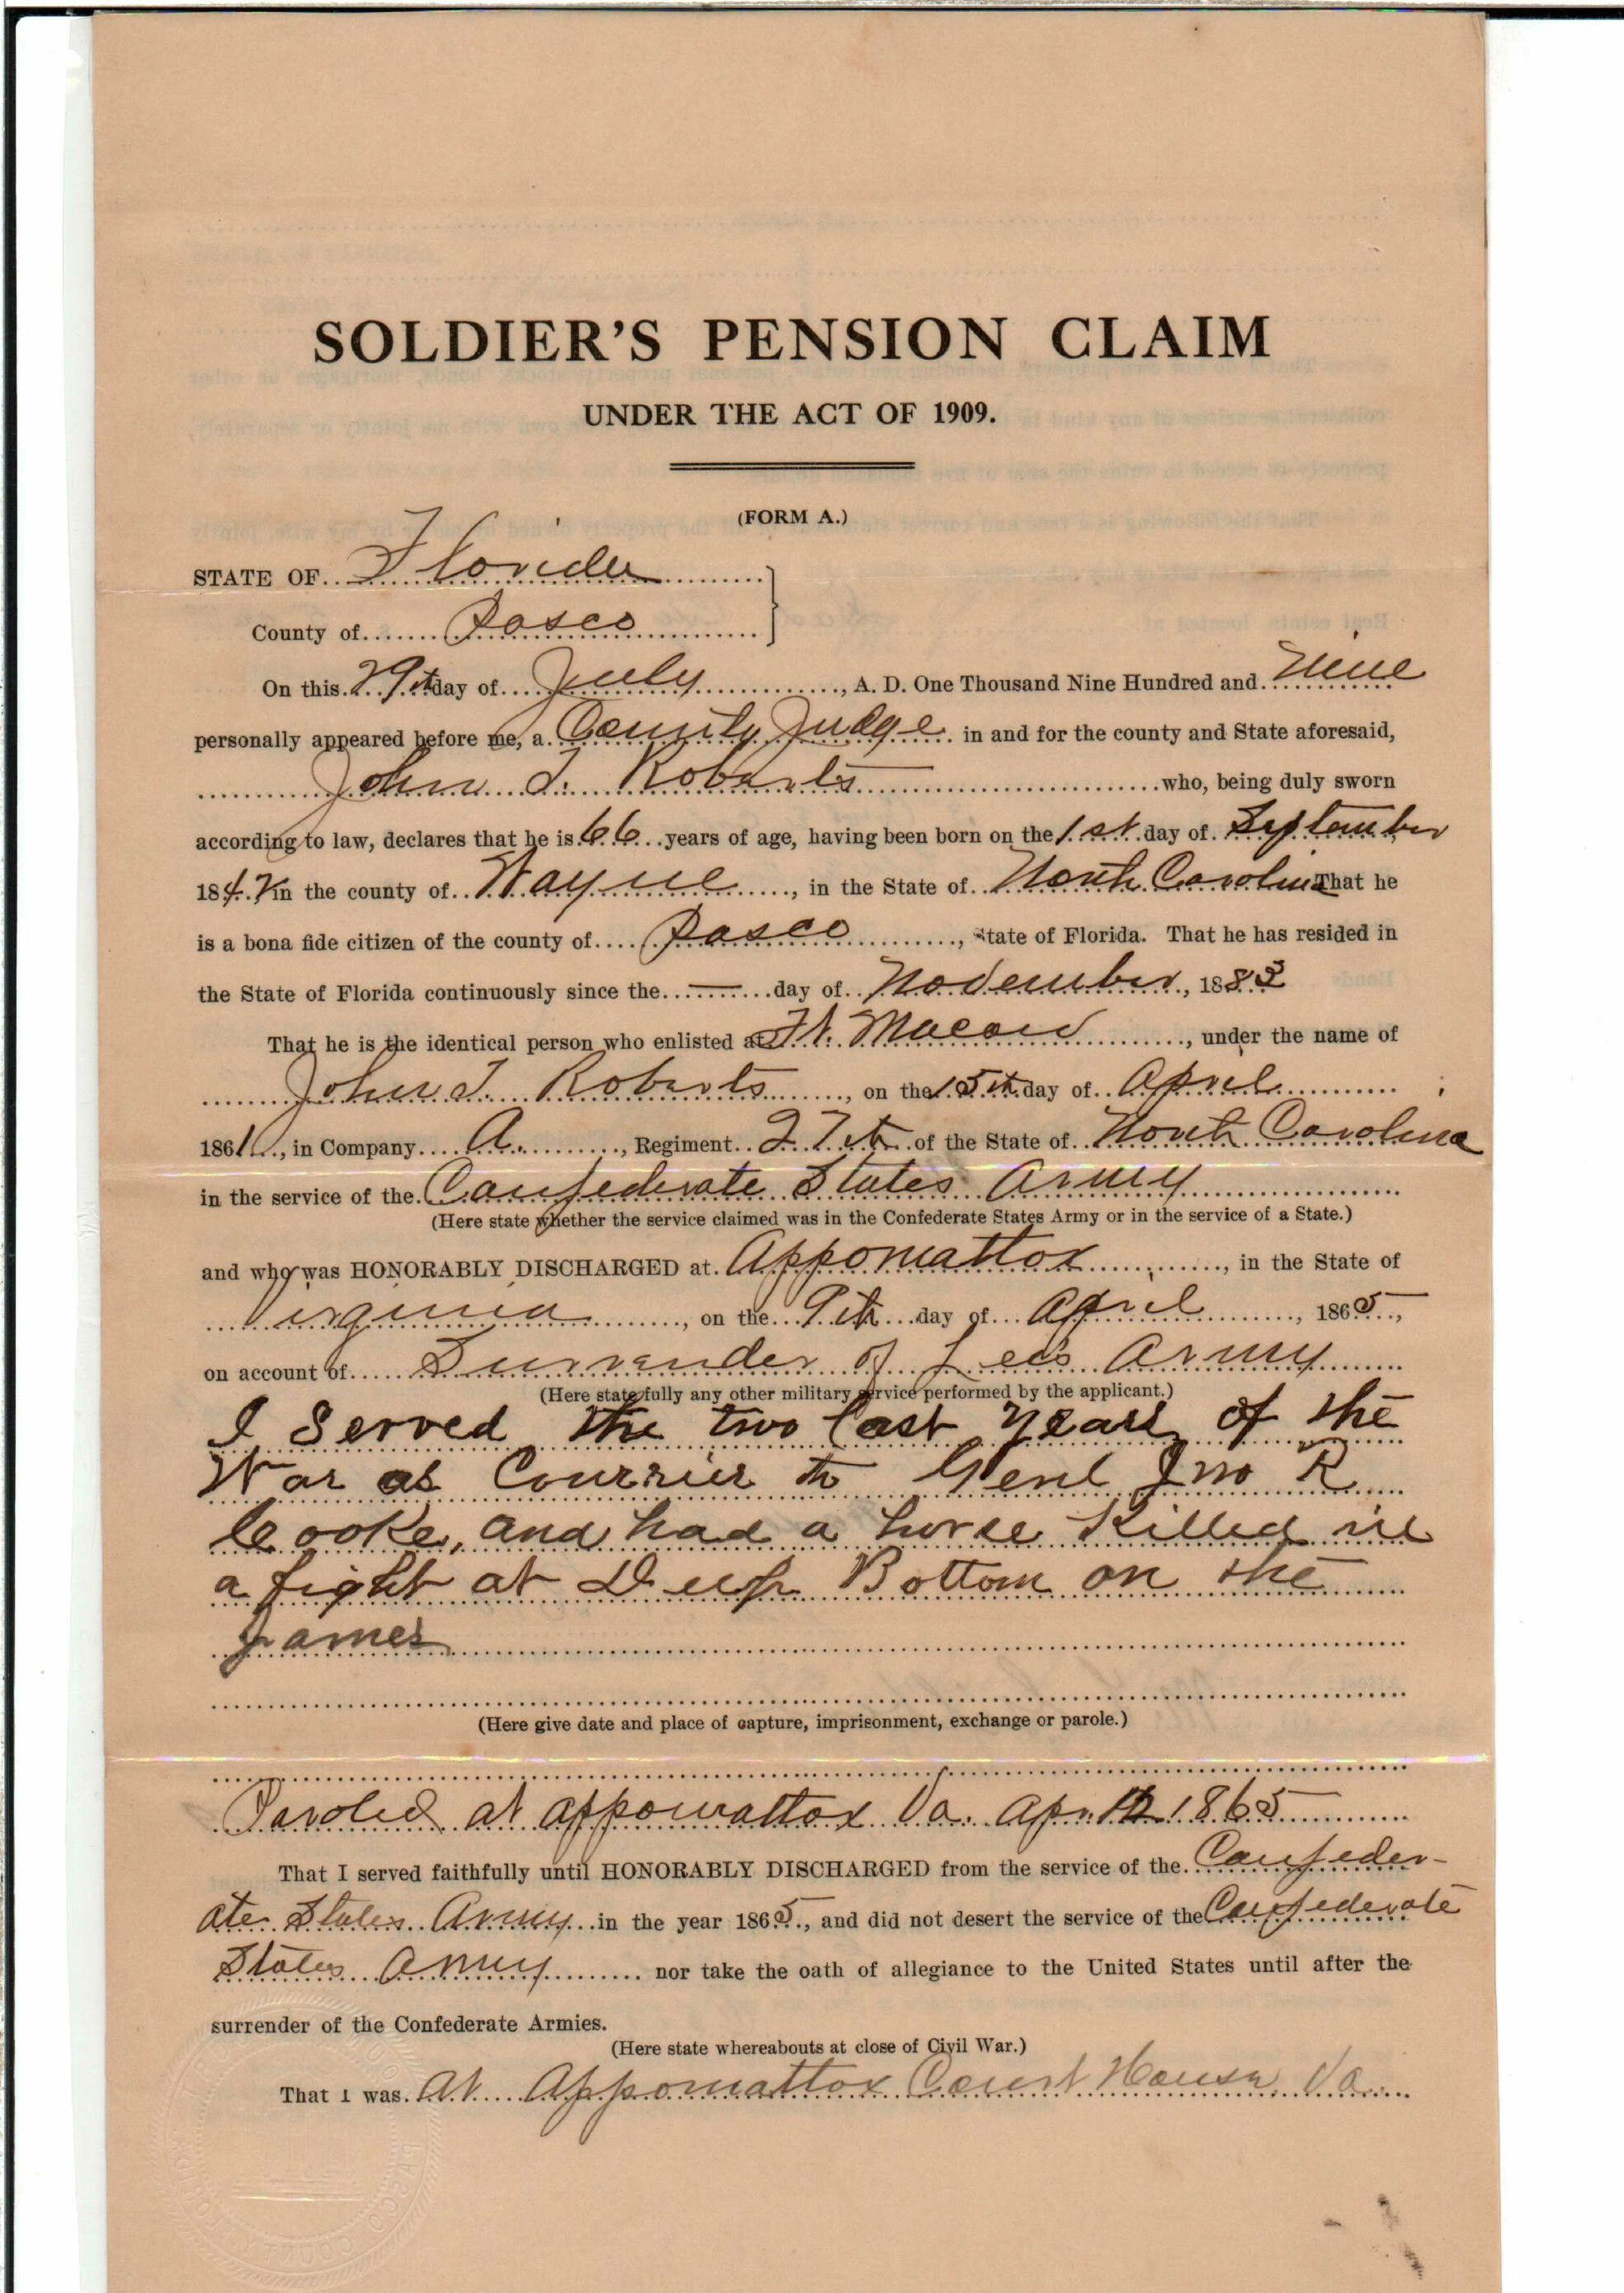 SOLDIER'S PENSION CLAIM
UNDER THE ACT OF 1909.
(FORM A.)
STATE OF Florida
County of Pasco
On this 29th day of July, A. D. One Thousand Nine Hundred and Nine
personally appeared before me, a County Judge in and for the county and State aforesaid,
John T. Roberts who, being duly sworn
according to law, declares that he is 66 years of age, having been born on the 1st day of September
184 in the county of Wayne, in the State of North Carolina That he
is a bona fide citizen of the county of Pasco, State of Florida. That he has resided in
the State of Florida continuously since the — day of November, 1883
That he is the identical person who enlisted at Ft. Macon, under the name of
John T. Roberts, on the 15th day of April
1861, in Company A., Regiment 27th of the State of North Carolina
in the service of the Confederate States Army
(Here state whether the service claimed was in the Confederate States Army or in the service of a State.)
and who was HONORABLY DISCHARGED at Appomattox, in the State of
Virginia, on the 9th day of April, 1865,
on account of Surrender of Lee's Army
(Here state fully any other military service performed by the applicant.)
I Served the two last years of the
War as Courrier to Genl Jno R
Cooke, and had a horse Killed in
a fight at Deep Bottom on the
James
(Here give date and place of capture, imprisonment, exchange or parole.)
Paroled at Appomattox Va. Apr. 12 1865
That I served faithfully until HONORABLY DISCHARGED from the service of the Confeder-
ate States Army in the year 1865, and did not desert the service of the Confederate
States Army nor take the oath of allegiance to the United States until after the
surrender of the Confederate Armies.
(Here state whereabouts at close of Civil War.)
That I was At Appomattox Court House, Va.